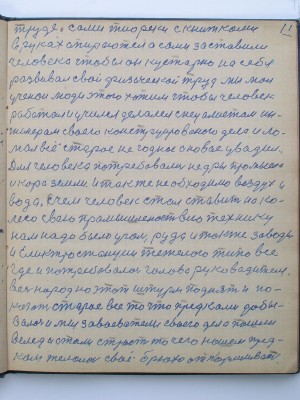 11
труде. сами теорики с книжками
в руках стираются а сами заставили
человека чтобы он кустарно на себя
развивал свой физический труд мы мол
ученые люди этого хотим чтобы человек
работал и учился делался специалистом ин-
жинером своего конструировского дела и ло-
мал всё старое не годное а новое увадил.
Для человека потребовали недры промысла
и кора земли и также необходимо воздух и
вода, С чем человек стал ставить на ко-
лесо свою промышленность всю технику
нам надо было уголь, руда и также заводы
и електростанции тежолого типо все
где и потребовалось голово руководителя.
Весь народ на этот штурм поднят и по-
старое все то что предками добы-
валось и мы завоеватели своего дела пошли
вслед и стали строить то чего нашем пред-
кам желолось своё брюхо откармливать